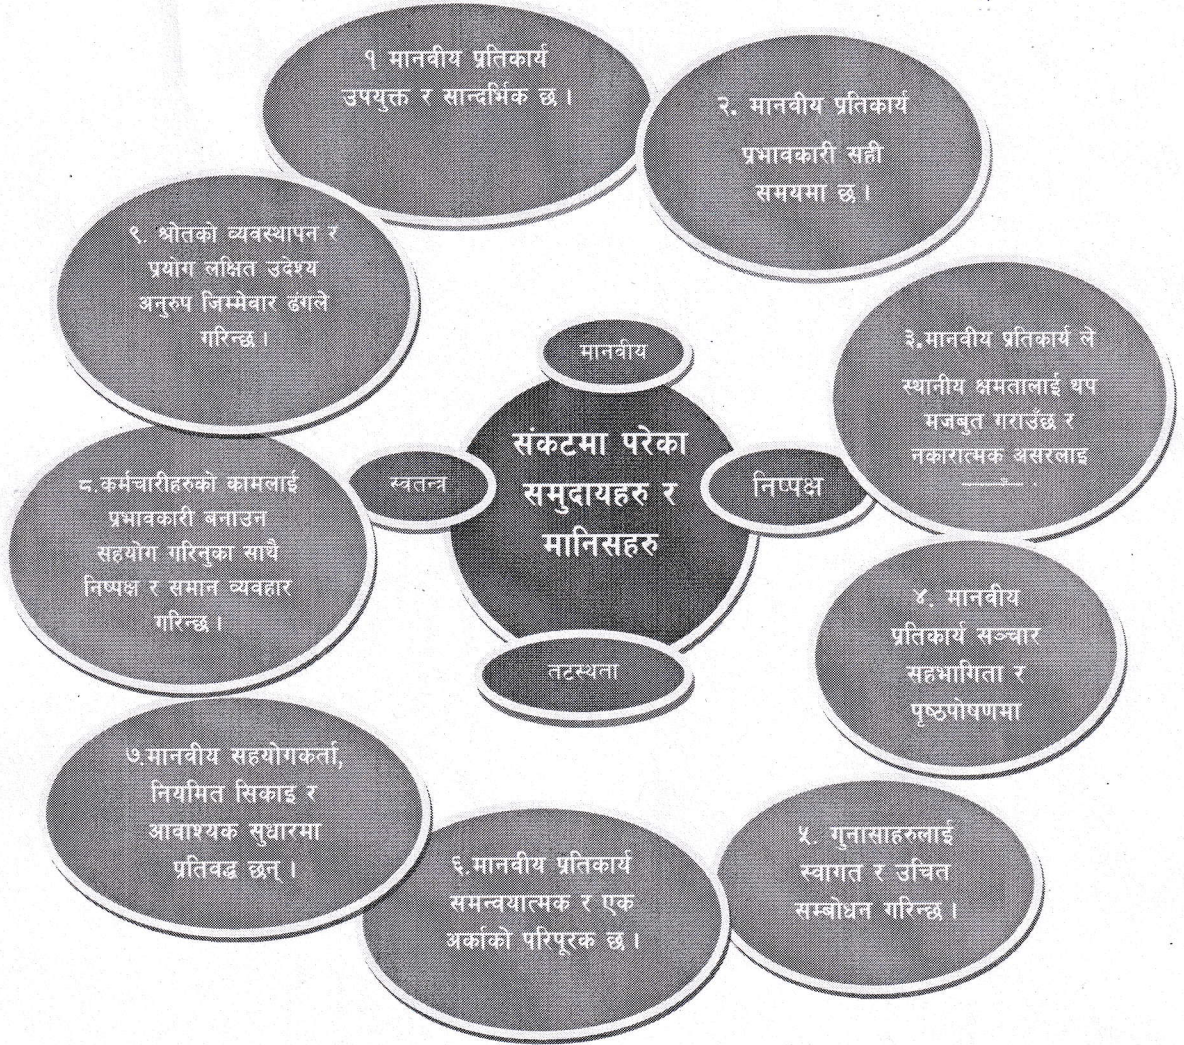 १ मानवीय प्रतिकार्य
उपयुक्त र सान्दर्भिक छ ।
२. मानवीय प्रतिकार्य
प्रभावकारी सही
समयमा छ ।
३.मानवीय प्रतिकार्य ले
स्थानीय क्षमतालाई थप
मजबुत गराउँछ र
नकारात्मक असरलाइ
४. मानवीय
प्रतिकार्य सञ्चार
सहभागिता र
पृष्ठपोषणमा
५. गुनासाहरुलाई
स्वागत र उचित
सम्बोधन गरिन्छ ।
६.मानवीय प्रतिकार्य
समन्वयात्मक र एक
अर्काको परिपूरक छ ।
७.मानवीय सहयोगकर्ता,
नियमित सिकाइ र
आवाश्यक सुधारमा
प्रतिवद्ध छन् ।
८.कर्मचारीहरुको कामलाई
प्रभावकारी बनाउन
सहयोग गरिनुका साथै
निष्पक्ष र समान व्यवहार
गरिन्छ ।
९. श्रोतको व्यवस्थापन र
प्रयोग लक्षित उदेश्य
अनुरुप जिम्मेवार ढंगले
गरिन्छ ।
मानवीय
संकटमा परेका
समुदायहरु र
मानिसहरु
स्वतन्त्र
निष्पक्ष
तटस्थता